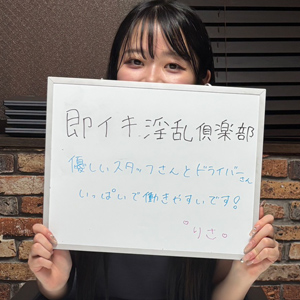 即イキ淫乱倶楽部
優しいスタッフさんとドライバーさん
いっぱいで働きやすいです!
りさ。